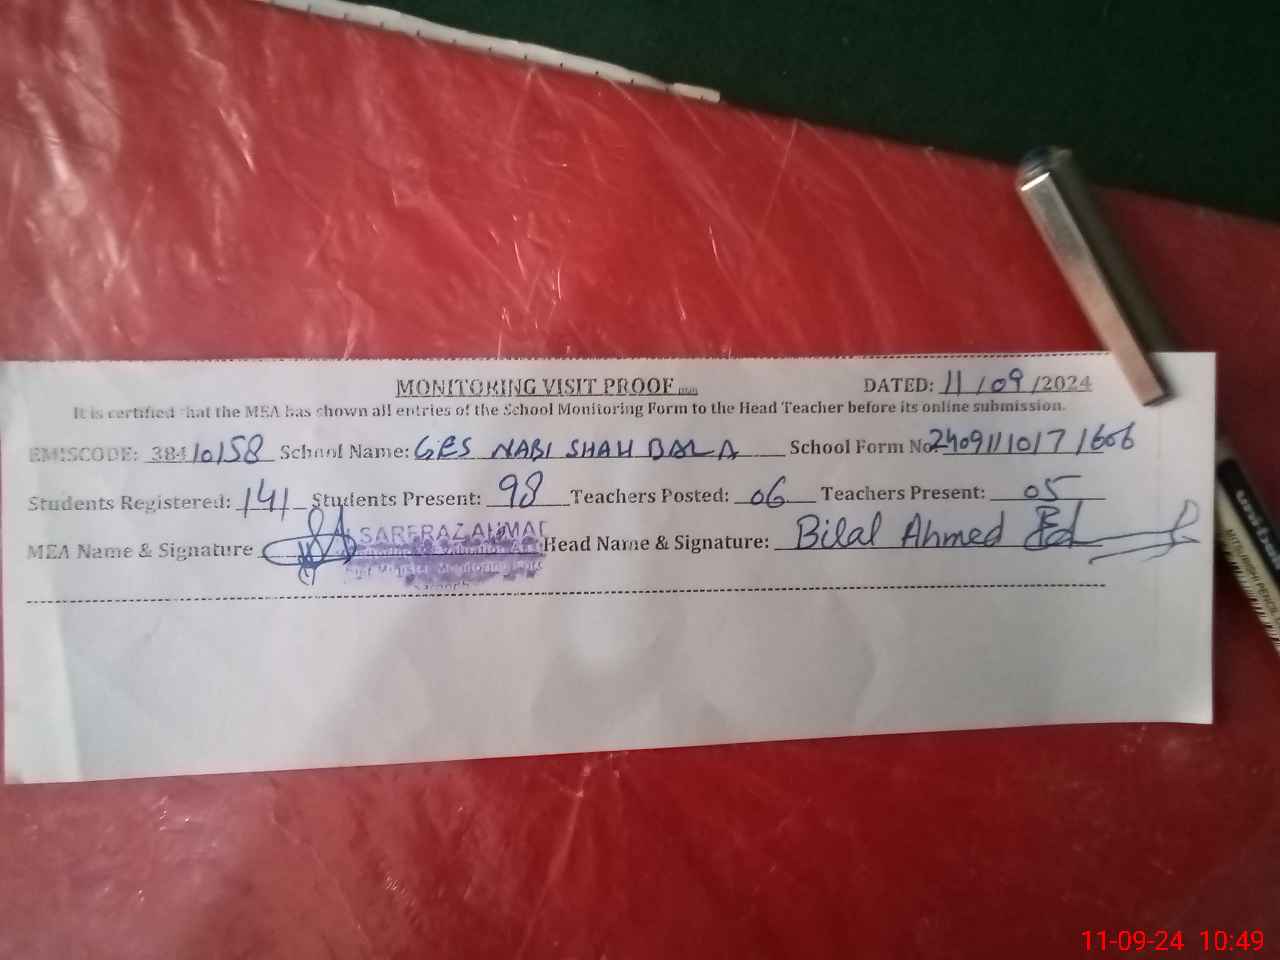 MONITORING VISIT PROOF DATED: 11/09/2024
It is certified that the MEA has shown all entries of the School Monitoring Form to the Head Teacher before its online submission.
EMISCODE: 38410158 School Name: GES NABI SHAH BALA School Form No.
Students Registered: 141 Students Present: 98 Teachers Posted: 06 Teachers Present: 05
MEA Name & Signature SARFRAZ AHMAD Head Name & Signature: Bilal Ahmed
Monitoring
MITSUBISHI PENCIL
11-09-24 10:49